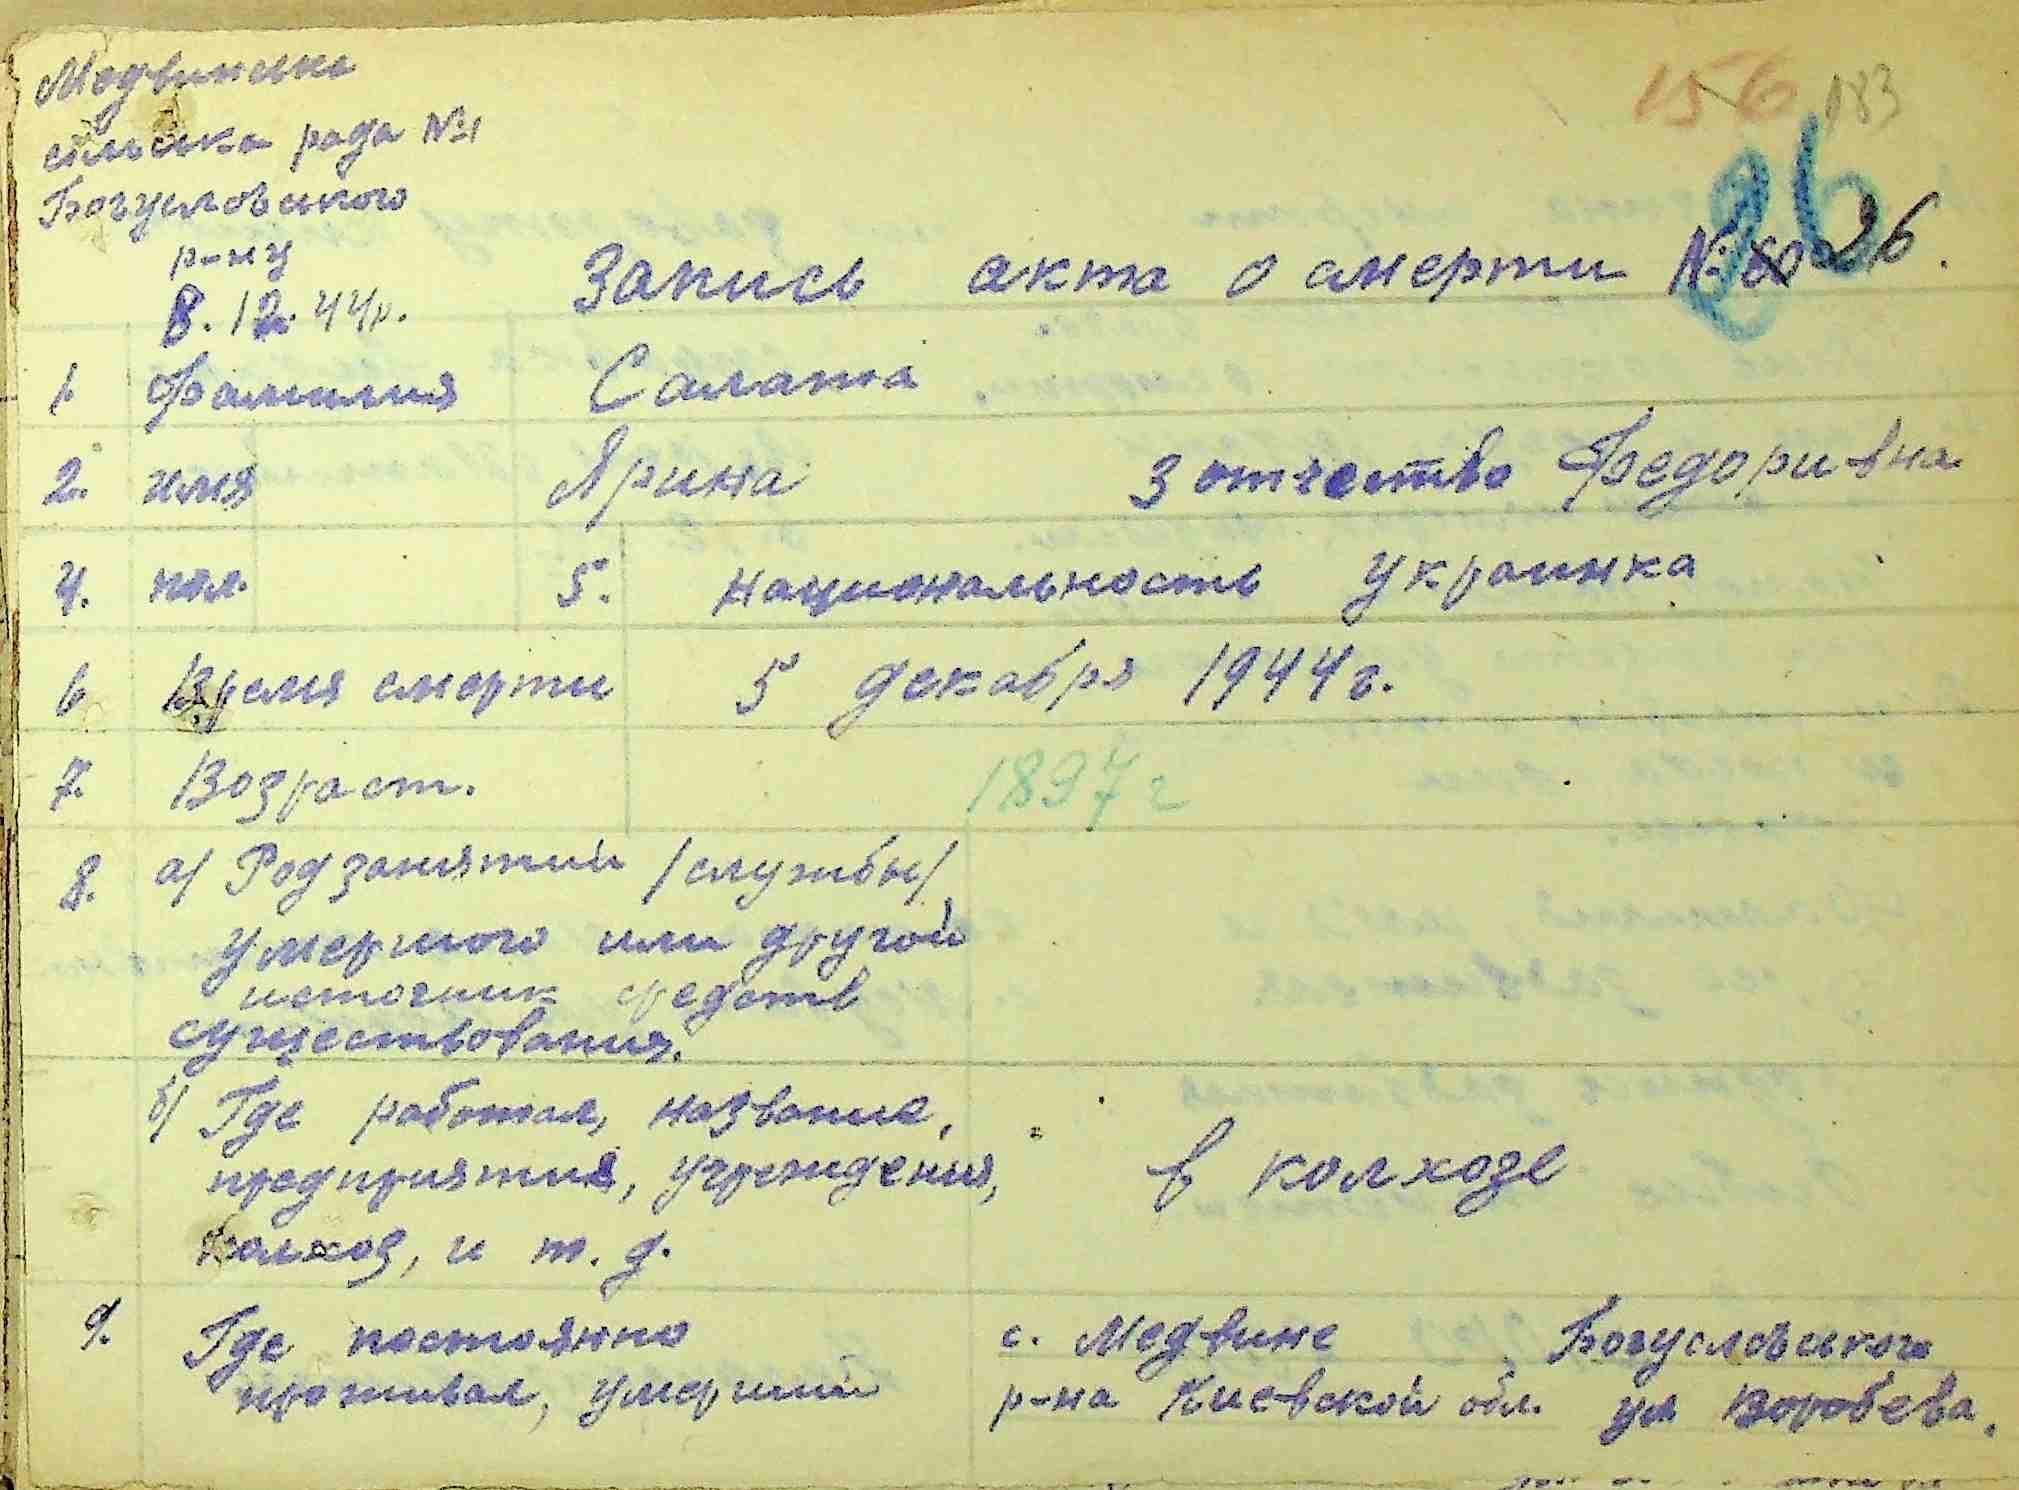 Медвинська
сільська рада №1
Богуславського
р-ну
8.12.44р.
156 183
26
Запись акта о смерти № 26.
1. Фамилия Салата
2. имя Ярина 3 отчество Федоривна
4. пол. 5. национальность украинка
6 Время смерти 5 декабря 1944г.
7. Возраст. 1897 г
8. а/ Род занятий /службы/
умершого или другой
источник средств
существования.
б/ Где работал, название,
предприятия, учреждения, в колхозе
колхоз, и т. д.
9. Где постоянно с. Медвине Богуславського
проживал, умерший р-на Киевской обл. ул Воробева.